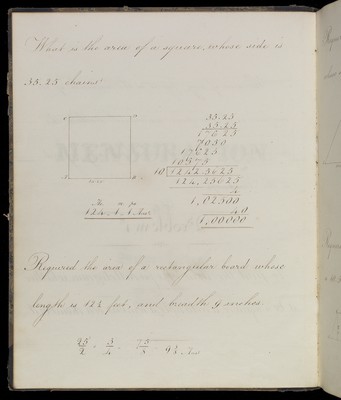 What is the area of a square, whose side is
35.25 chains
35.25
35.25
17625
7050
17625
10575
10)1242.5625
124.25625
4
1,02500
40
1,00000
A. R. Po
124. 1. 1 Ans
Required the area of a rectangular board whose
length is 12½ feet, and breadth 9 inches.
25/2 . 3/4 . 75/8 . 9⅜ Ans